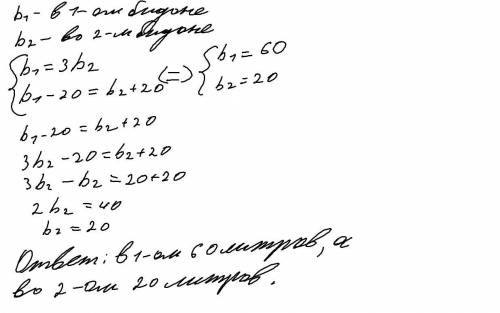 b₁ - в 1-ом бидоне
b₂ - во 2-м бидоне
{ b₁ = 3b₂
b₁ - 20 = b₂ + 20 (=) { b₁ = 60
b₂ = 20
b₁ - 20 = b₂ + 20
3b₂ - 20 = b₂ + 20
3b₂ - b₂ = 20 + 20
2b₂ = 40
b₂ = 20
Ответ: в 1-ом 60 литров, а
во 2-ом 20 литров.